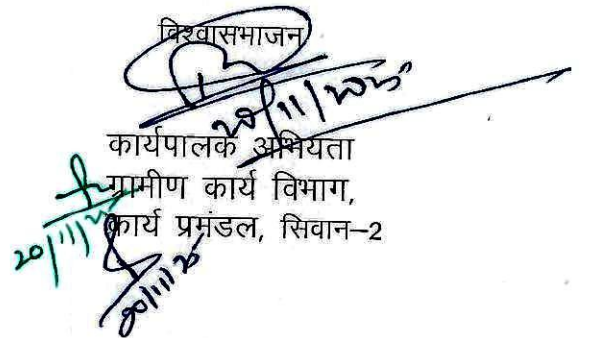 विश्वासभाजन
20/11/2025
कार्यपालक अभियता
ग्रामीण कार्य विभाग,
कार्य प्रमंडल, सिवान–2
20/11/25
20/11/25